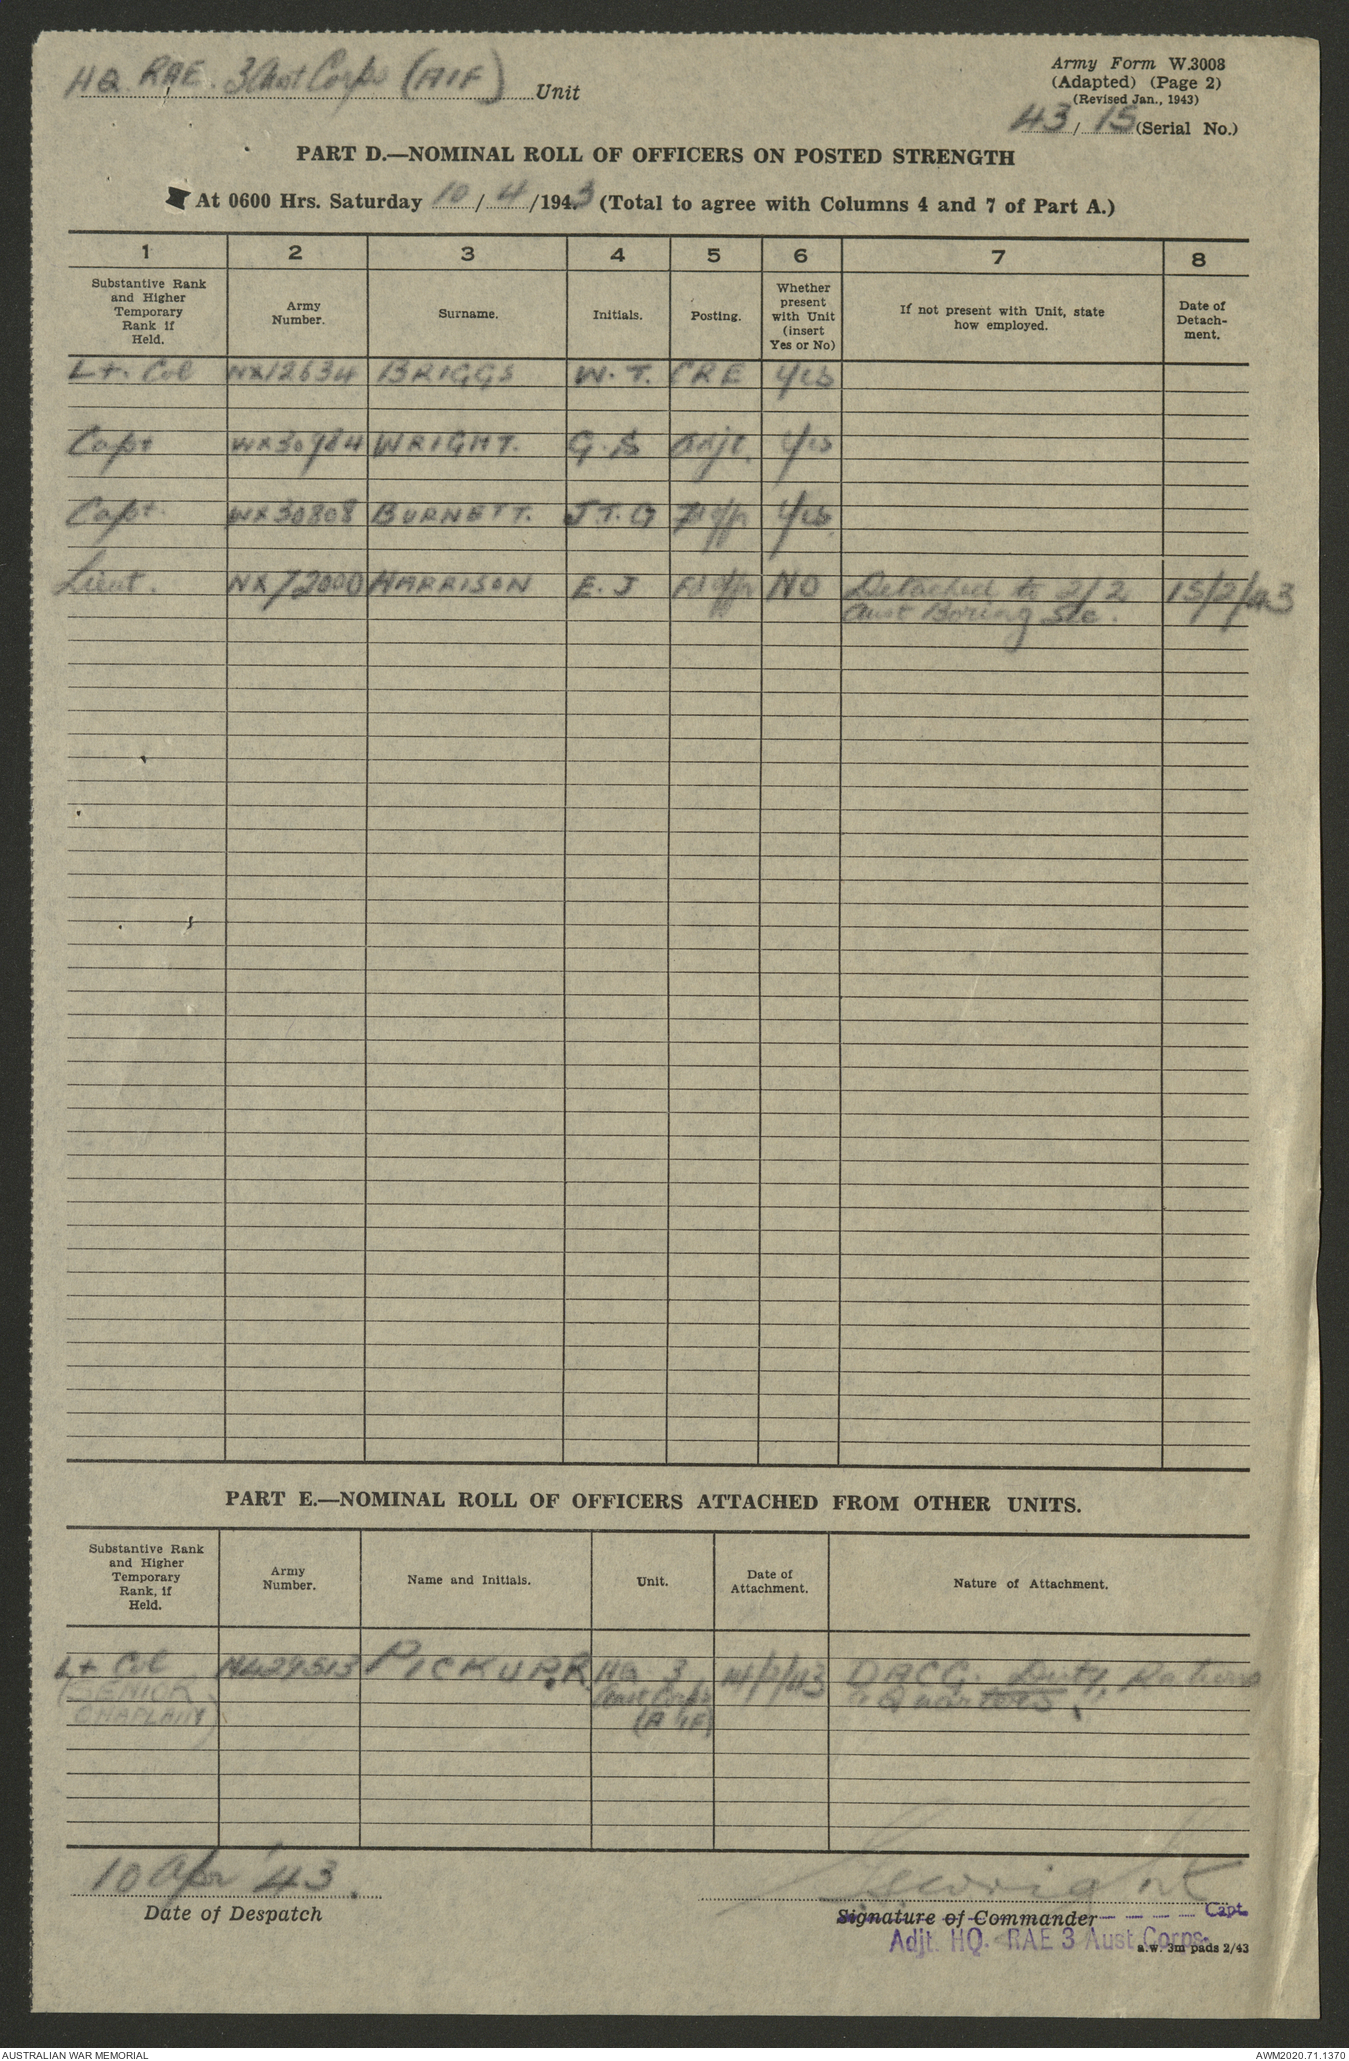 HQ. RAE. 3 Aust Corps (AIF) Unit
Army Form W.3008
(Adapted) (Page 2)
(Revised Jan., 1943)
43/15 (Serial No.)
PART D.—NOMINAL ROLL OF OFFICERS ON POSTED STRENGTH
At 0600 Hrs. Saturday 10/4/1943 (Total to agree with Columns 4 and 7 of Part A.)
1 2 3 4 5 6 7 8
Substantive Rank and Higher Temporary Rank if Held. Army Number. Surname. Initials. Posting. Whether present with Unit (insert Yes or No) If not present with Unit, state how employed. Date of Detachment.
Lt. Col NX12634 BRIGGS W. T. CRE Yes
Capt WRIGHT. G. S Adjt. Yes
Capt. WX30808 BURNETT. J. T. G Yes
Lieut. NX72000 HARRISON E. J Fd Offr NO Detached to 2/2 15/2/43
Aust Boring Sec.
PART E.—NOMINAL ROLL OF OFFICERS ATTACHED FROM OTHER UNITS.
Substantive Rank and Higher Temporary Rank, if Held. Army Number. Name and Initials. Unit. Date of Attachment. Nature of Attachment.
Lt Col PICKUP. R. HQ 3 DACG. Duty, Rations
(SENIOR Aust Corps Quarters.
CHAPLAIN) (AIF)
10 Apr '43.
Date of Despatch
GSWright
Signature of Commander Capt.
Adjt. HQ. RAE 3 Aust Corps.
a.w. 3m pads 2/43
AUSTRALIAN WAR MEMORIAL
AWM2020.71.1370